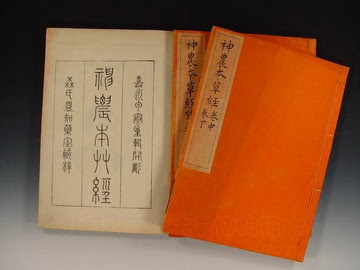 神農本草經 卷中
卷下
神農本草經
嘉永甲寅重輯開彫
神農本艸經
森氏温知藥室藏梓